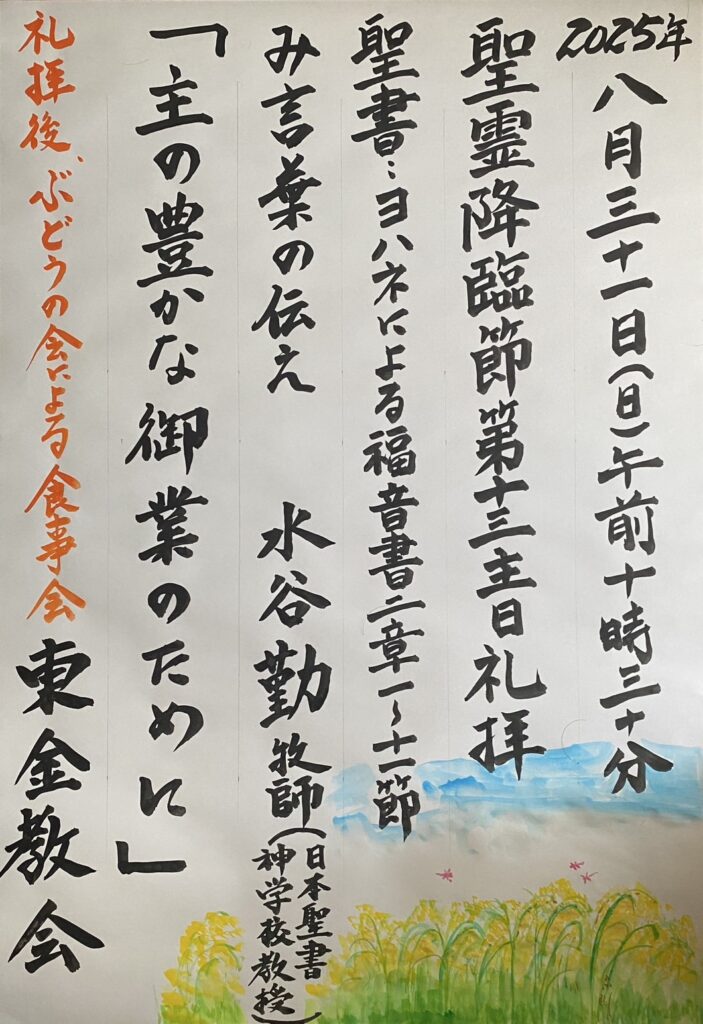 2025年
八月三十一日(日)午前十時三十分
聖霊降臨節第十三主日礼拝
聖書:ヨハネによる福音書二章一~十一節
み言葉の伝え 水谷勤牧師(日本聖書
神学校教授)
「主の豊かな御業のために」
礼拝後、ぶどうの会による食事会
東金教会